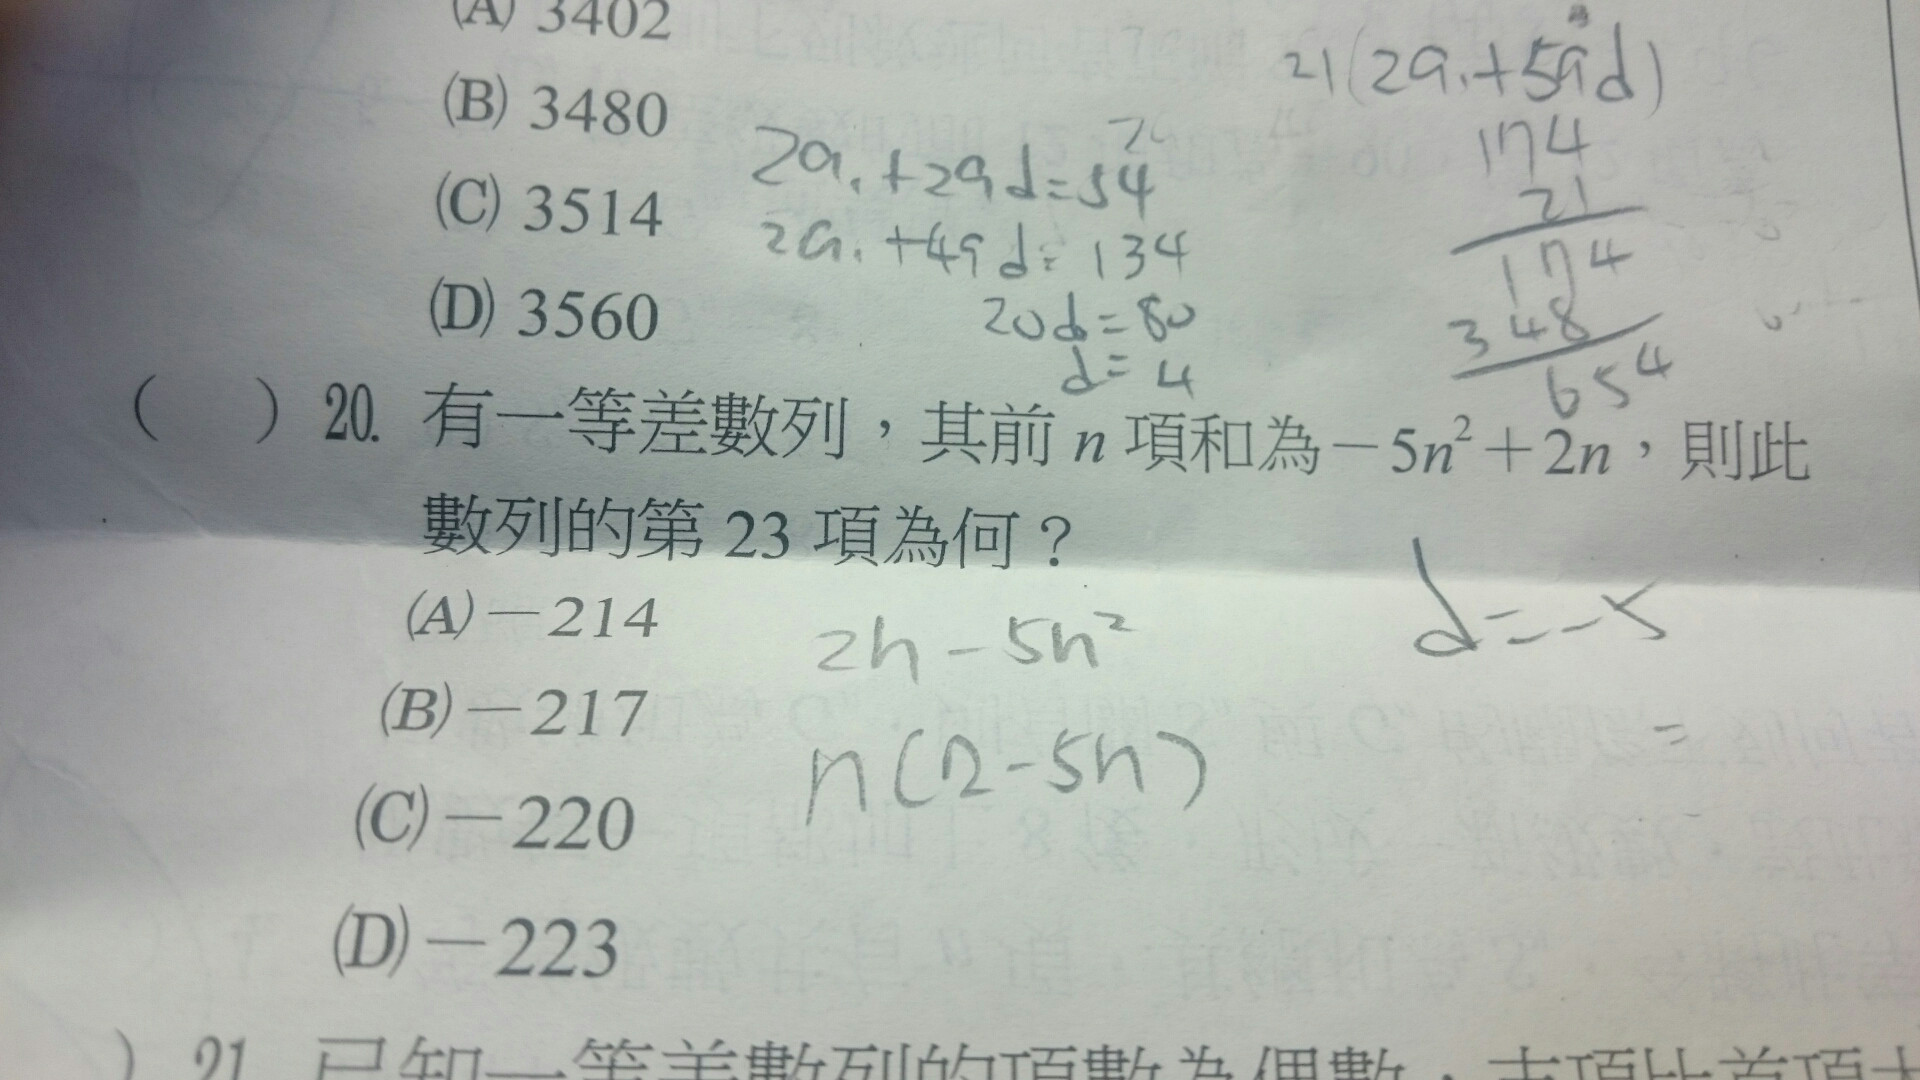 (A) 3402
(B) 3480
(C) 3514
(D) 3560
2a₁+29d=54
2a₁+49d=134
20d=80
d=4
21(2a₁+59d)
174
21
174
348
654
( ) 20. 有一等差數列，其前 n 項和為－5n²＋2n，則此
數列的第 23 項為何？
(A)－214
(B)－217
(C)－220
(D)－223
2n-5n²
n(2-5n)
d=-5
=
) 21. 已知一等差數列的項數為偶數，末項比首項大